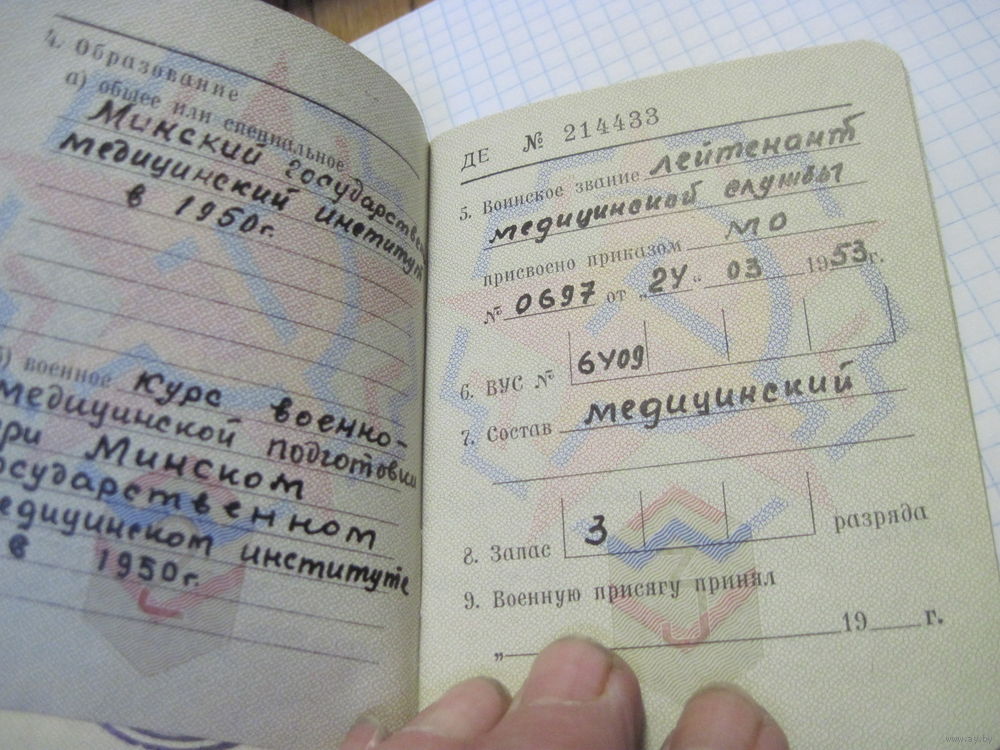 4. Образование
а) общее или специальное
Минский государствен
медицинский институт
в 1950г.
военное курс военно-
медицинской подготовки
при Минском
государственном
медицинском институте
в 1950г.
ДЕ № 214433
5. Воинское звание лейтенант
медицинской службы
присвоено приказом МО
№ 0697 от „24" 03 1953г.
6. ВУС № 6409
7. Состав медицинский
8. Запас 3 разряда
9. Военную присягу принял
„ 19 г.
www.ay.by